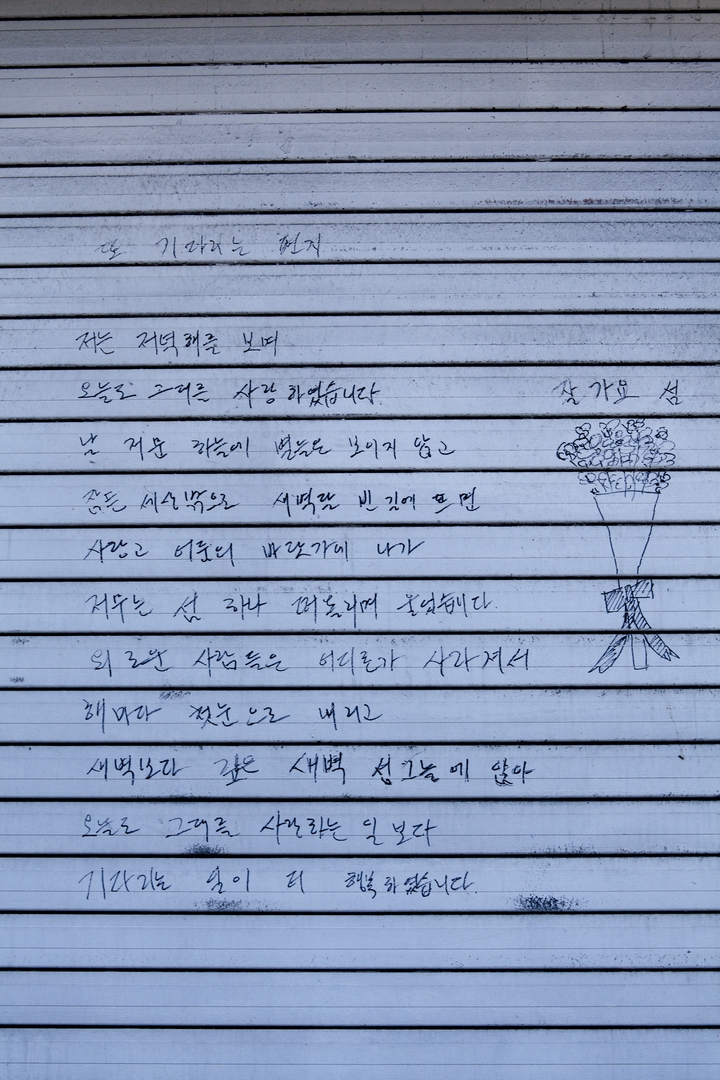 또 기다리는 편지
저는 저녁해를 보며
오늘도 그대를 사랑하였습니다.
잘가요 섬
날 저문 하늘에 별들은 보이지 않고
잠든 세상 밖으로 새벽달 빈 길에 뜨면
사랑과 어둠의 바닷가에 나가
저무는 섬 하나 떠올리며 울었습니다.
외로운 사람들은 어디론가 사라져서
해마다 첫눈으로 내리고
새벽보다 깊은 새벽 섬 그늘에 앉아
오늘도 그대를 사랑하는 일보다
기다리는 일이 더 행복하였습니다.